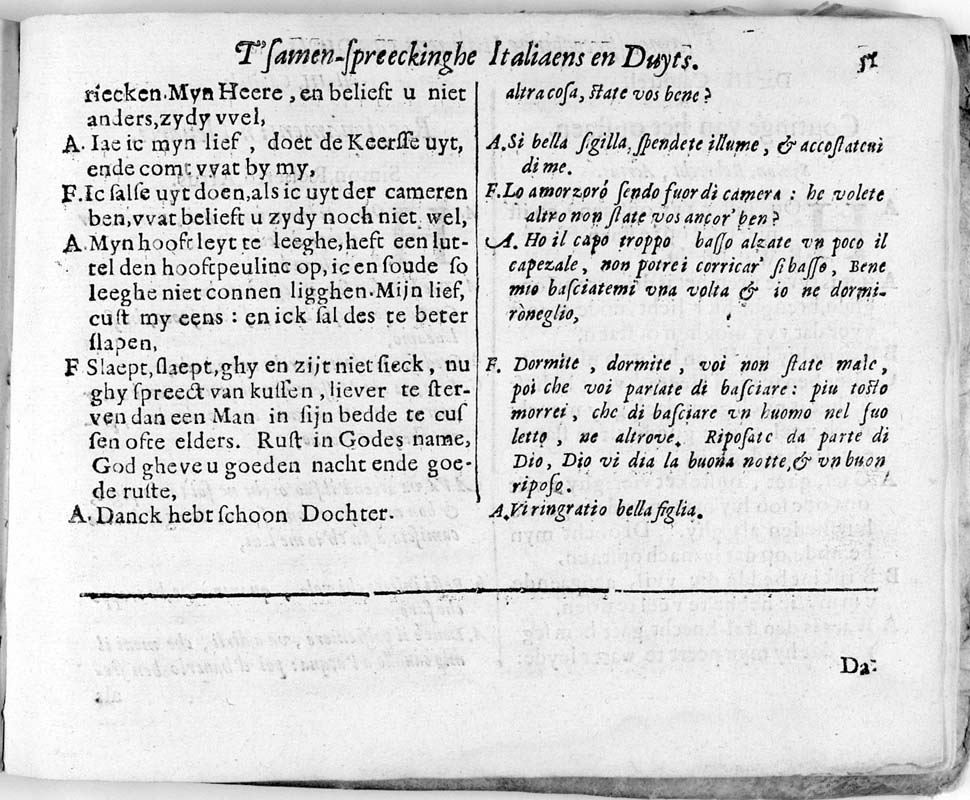 T'samen-spreeckinghe Italiaens en Duyts. 51
riecken. Myn Heere, en belieft u niet
anders, zydy vvel,
A. Iae ic myn lief, doet de Keersse uyt,
ende comt vvat by my,
F. Ic salse uyt doen, als ic uyt der cameren
ben, vvat belieft u zydy noch niet wel,
A. Myn hooft leyt te leeghe, heft een lut-
tel den hooftpeulinc op, ic en soude so
leeghe niet connen ligghen. Mijn lief,
cust my eens: en ick sal des te beter
slapen,
F Slaept, slaept, ghy en zijt niet sieck, nu
ghy spreect van kussen, liever te ster-
ven dan een Man in sijn bedde te cus
sen ofte elders. Rust in Godes name,
God gheve u goeden nacht ende goe-
de ruste,
A. Danck hebt schoon Dochter.
altra cosa, state vos bene?
A. Si bella figilla, spendete illume, & accostateui
di me.
F. Lo amorzoró sendo fuor di camera: he volete
altro non state vos ancor' ben?
A. Ho il capo troppo basso alzate vn poco il
capezale, non potrei corricar' si basso, Bene
mio basciatemi vna volta & io ne dormi-
roneglio,
F. Dormite, dormite, voi non state male,
poi che voi parlate di basciare: piu tosto
morrei, che di basciare vn huomo nel suo
letto, ne altrove. Riposate da parte di
Dio, Dio vi dia la buona notte, & vn buon
riposo.
A. Viringratio bella figlia.
Da-